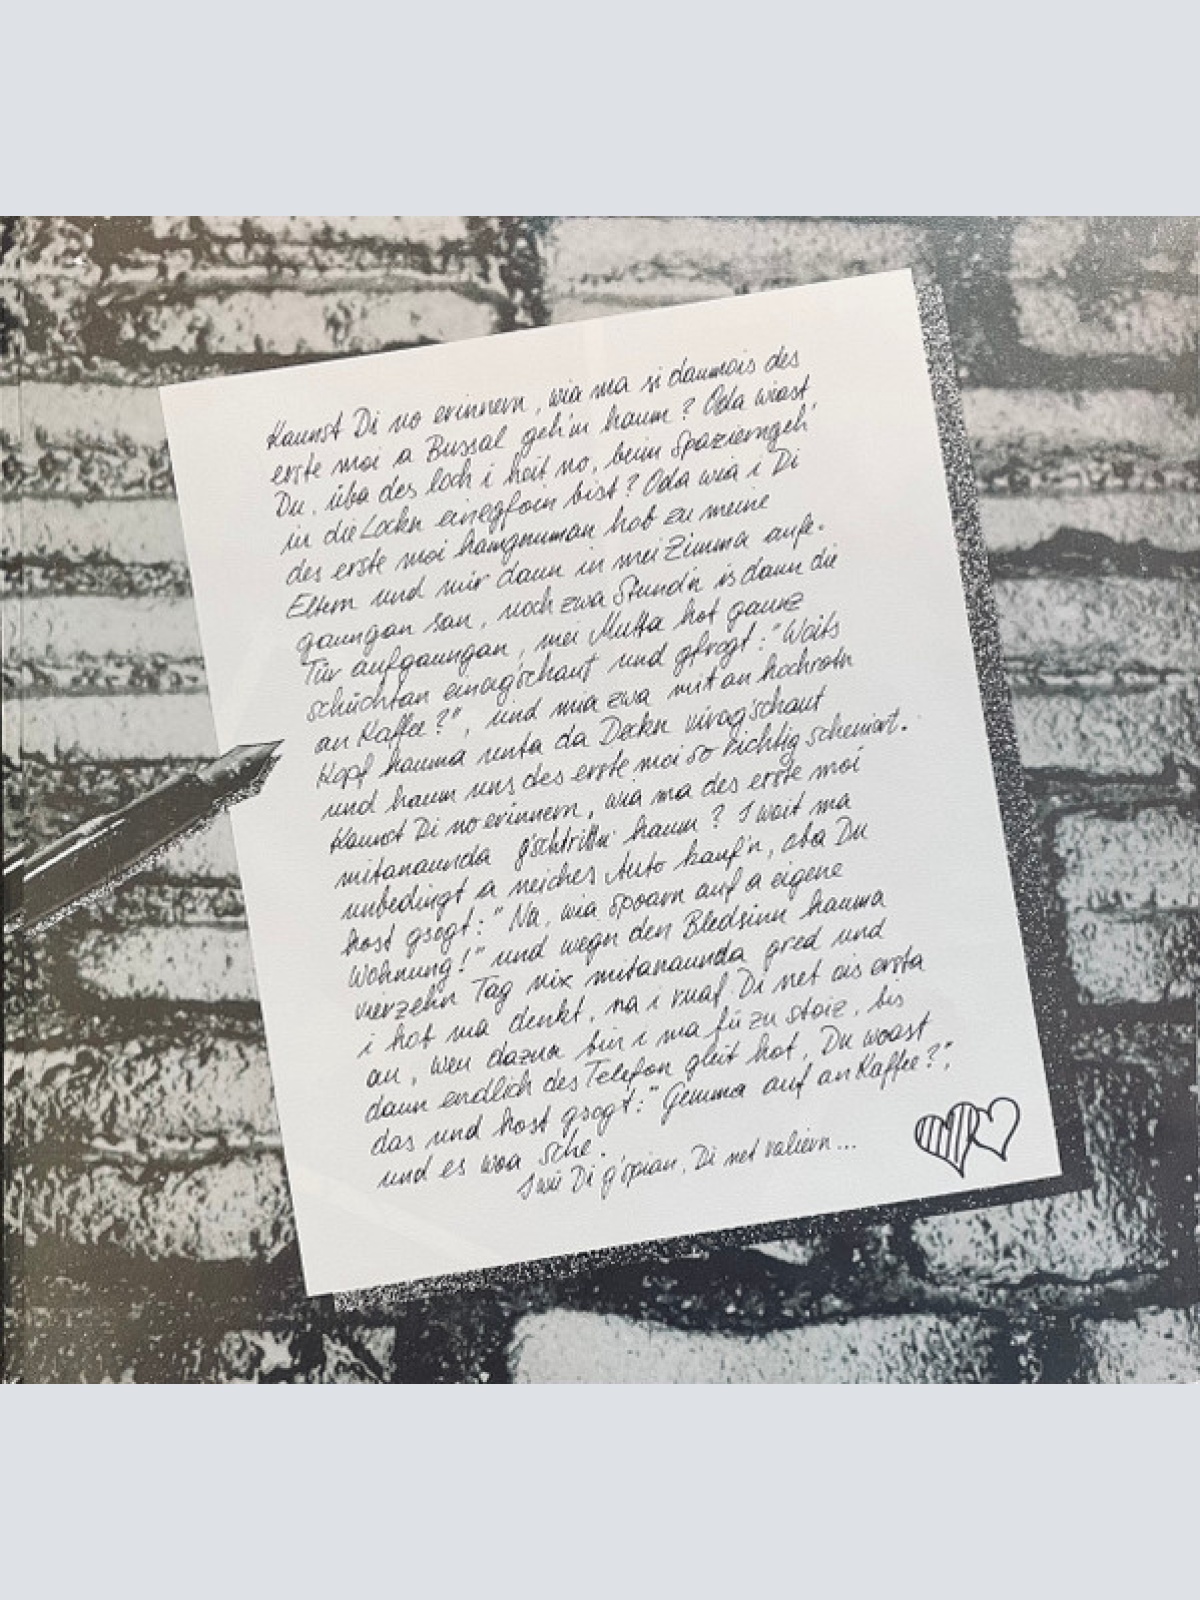 Kannst Di no erinnern, wia ma si daumois des
erste moi a Bussal geb'm haum? Oda wiast
Du, üba des loch i heit no, beim Spazierngeh'
in die Lockn einegfoin bist? Oda wia i Di
des erste moi hamgnuman hob zu meine
Eltern und mir dann in mei Zimma aufe-
gaungan san, noch zwa Stund'n is dann die
Tür aufgaungan, mei Mutta hot gaunz
schüchtan einag'schaut und gfrogt: "Woits
an Kaffee?", und mia zwa mit an hochrotn
Kopf hamma unta da Deckn virag'schaut
und haum uns des erste moi so richtig scheniert.
Kannst Di no erinnern, wia ma des erste moi
mitanaunda g'schtrittn haum? I woit ma
unbedingt a neiches Auto kauf'n, oba Du
host gsogt: "Na, wia spoarn auf a eigene
Wohnung!" und wegn den Bledsinn hamma
vierzehn Tag nix mitanaunda gred und
i hob ma denkt, na i ruaf Di net ois ersta
an, weu dazua bin i ma fü zu stoiz, bis
dann endlich des Telefon gleit hot, Du woast
das und host gsogt: "Gemma auf an Kaffee?",
und es woa sche.
I wü Di g'spian, Di net valiern...